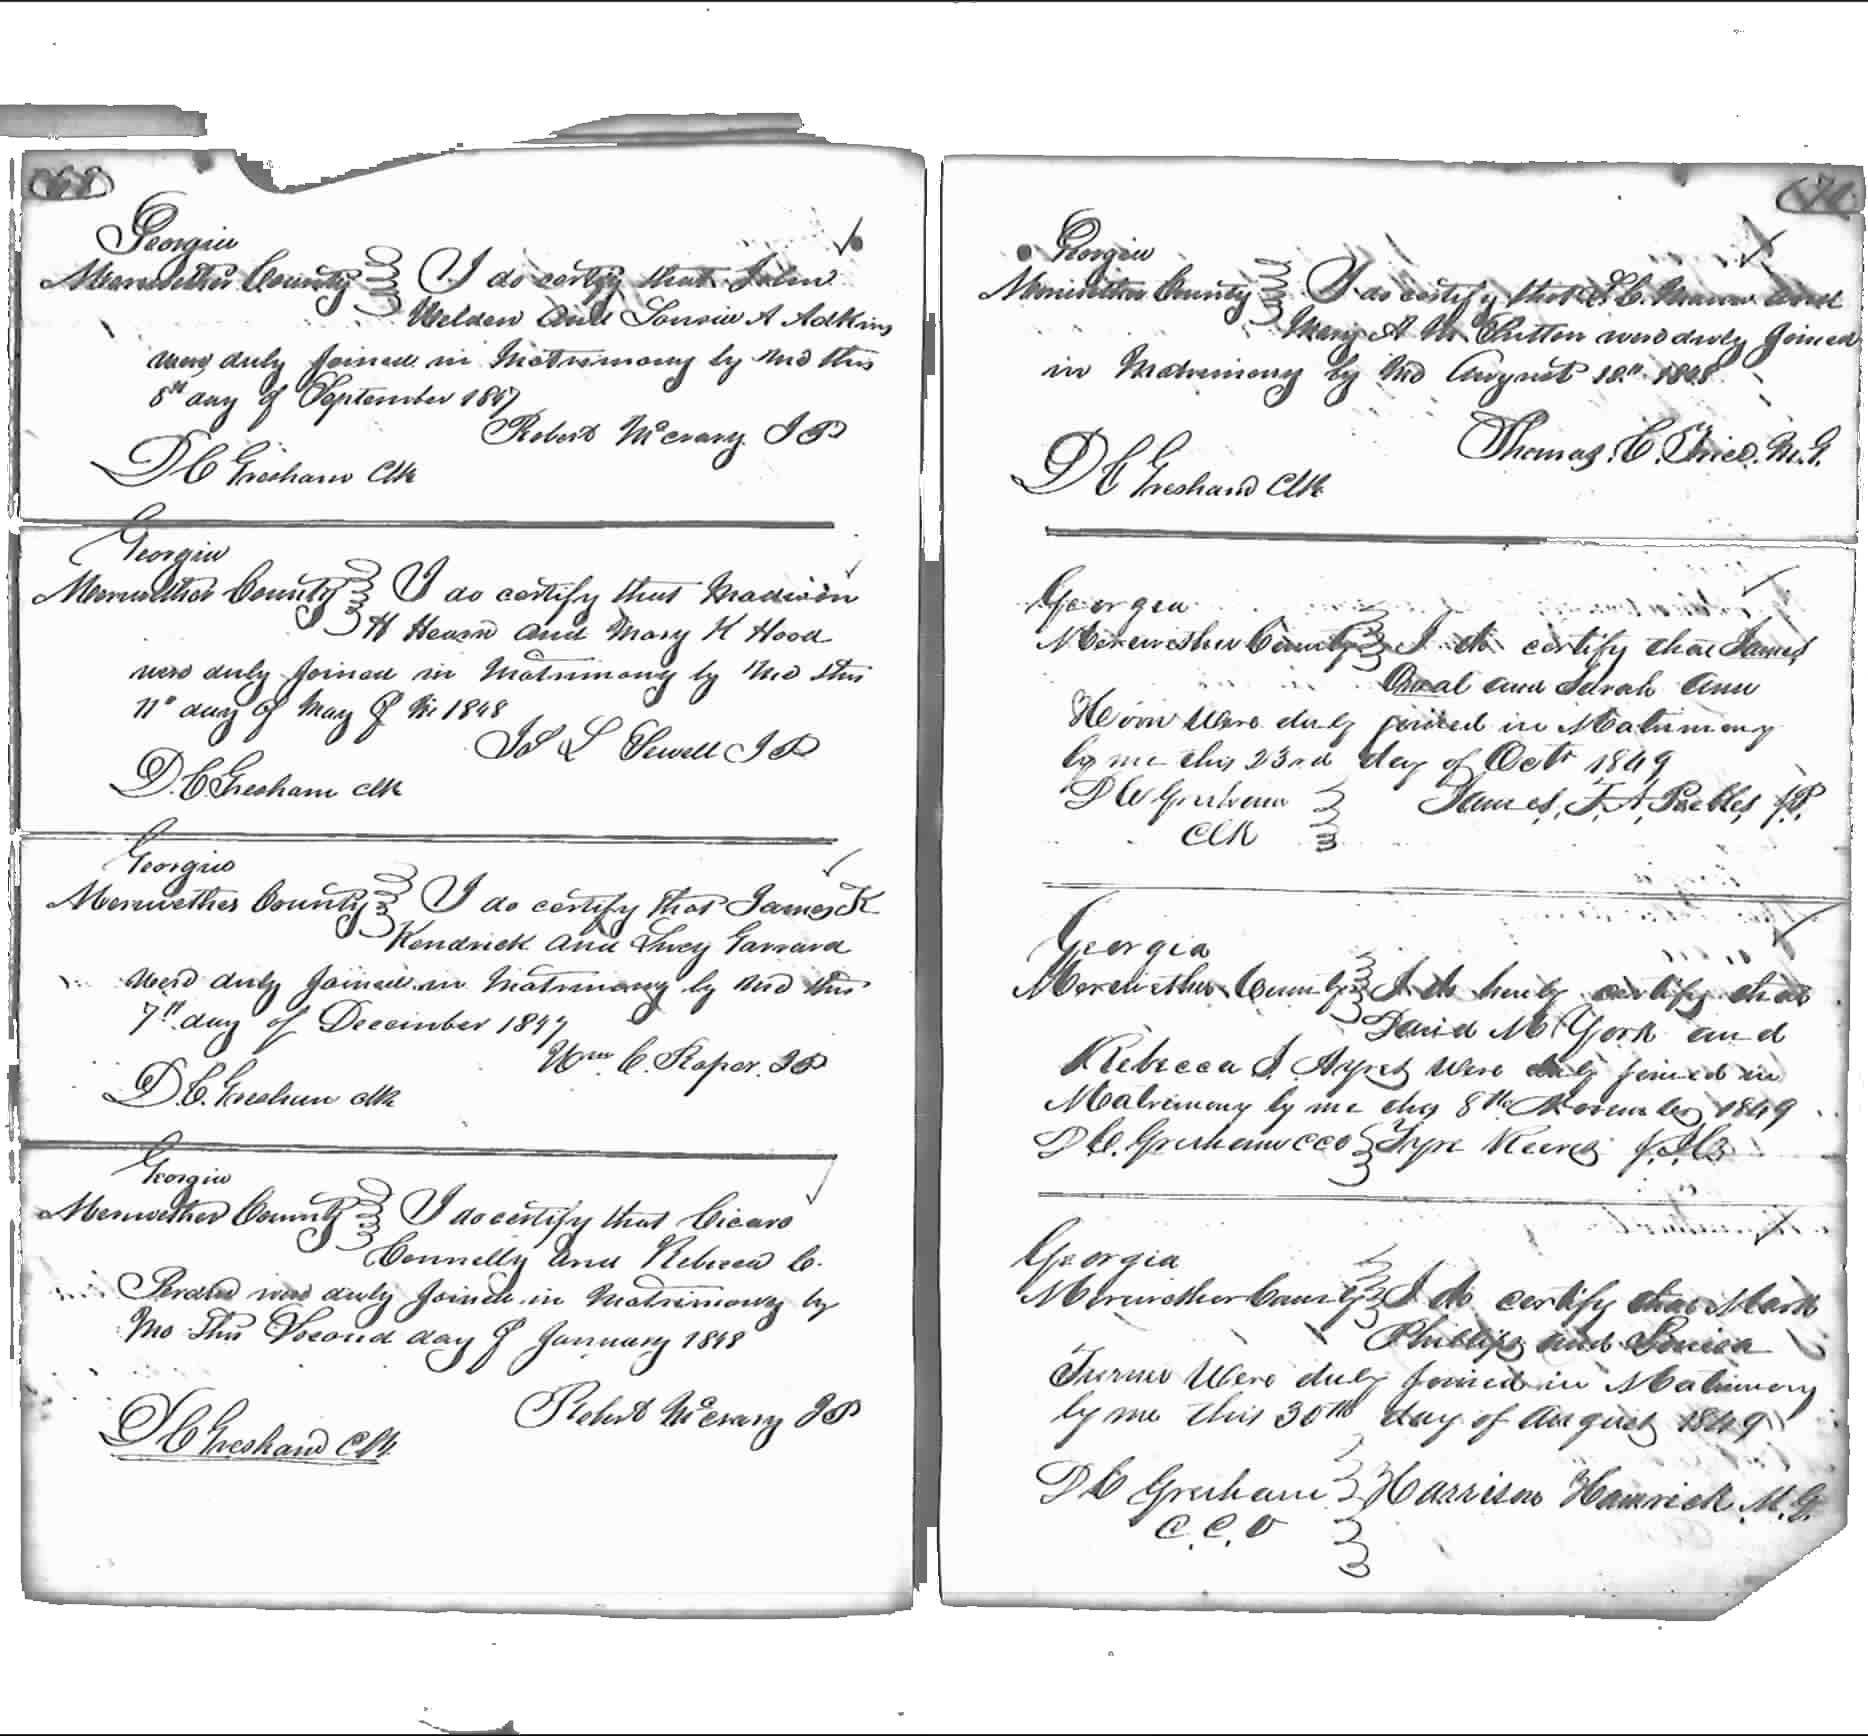 Georgia
Meriwether County I do certify that John
Welden and Louisa A Adkins
were duly joined in Matrimony by me this
8th day of September 1847
Robert McCrary J P
D C Gresham Clk
Georgia
Meriwether County I do certify that Madison
H Hearn and Mary K Hood
were duly joined in Matrimony by me this
11th day of May 1848
L Sewell J P
D. C. Gresham Clk
Georgia
Meriwether County I do certify that James K
Kendrick and Lucy Garrard
were duly joined in Matrimony by me this
7th day of December 1847
Wm C. Roper. J P
D. C. Gresham Clk
Georgia
Meriwether County I do certify that Cicero
Connelly and Rebecca C.
were duly joined in Matrimony by
me this Second day of January 1848
Robert McCrary J P
D C Gresham Clk
Georgia
Meriwether County I do certify that and
Mary A M were duly joined
in Matrimony by me August 1848
Thomas. C. M. G.
D C Gresham Clk
Georgia
Merewether County I do certify that James
Oneal and Sarah Ann
were duly joined in Matrimony
by me this 23rd day of Octr 1849
D C Gresham James, F. A. Peebles, J.P.
Clk
Georgia
Merewether County I do hereby certify that
David M York and
Rebecca J. were duly joined in
Matrimony by me this 8th November 1849
D C. Gresham CCO Tyre Reeves
Georgia
Merewether County I do certify that Mark
Phillips and Louisa
Turner were duly joined in Matrimony
by me this 30th day of August 1849
D C Gresham Harrison Hamrick. M. G.
C. C. O